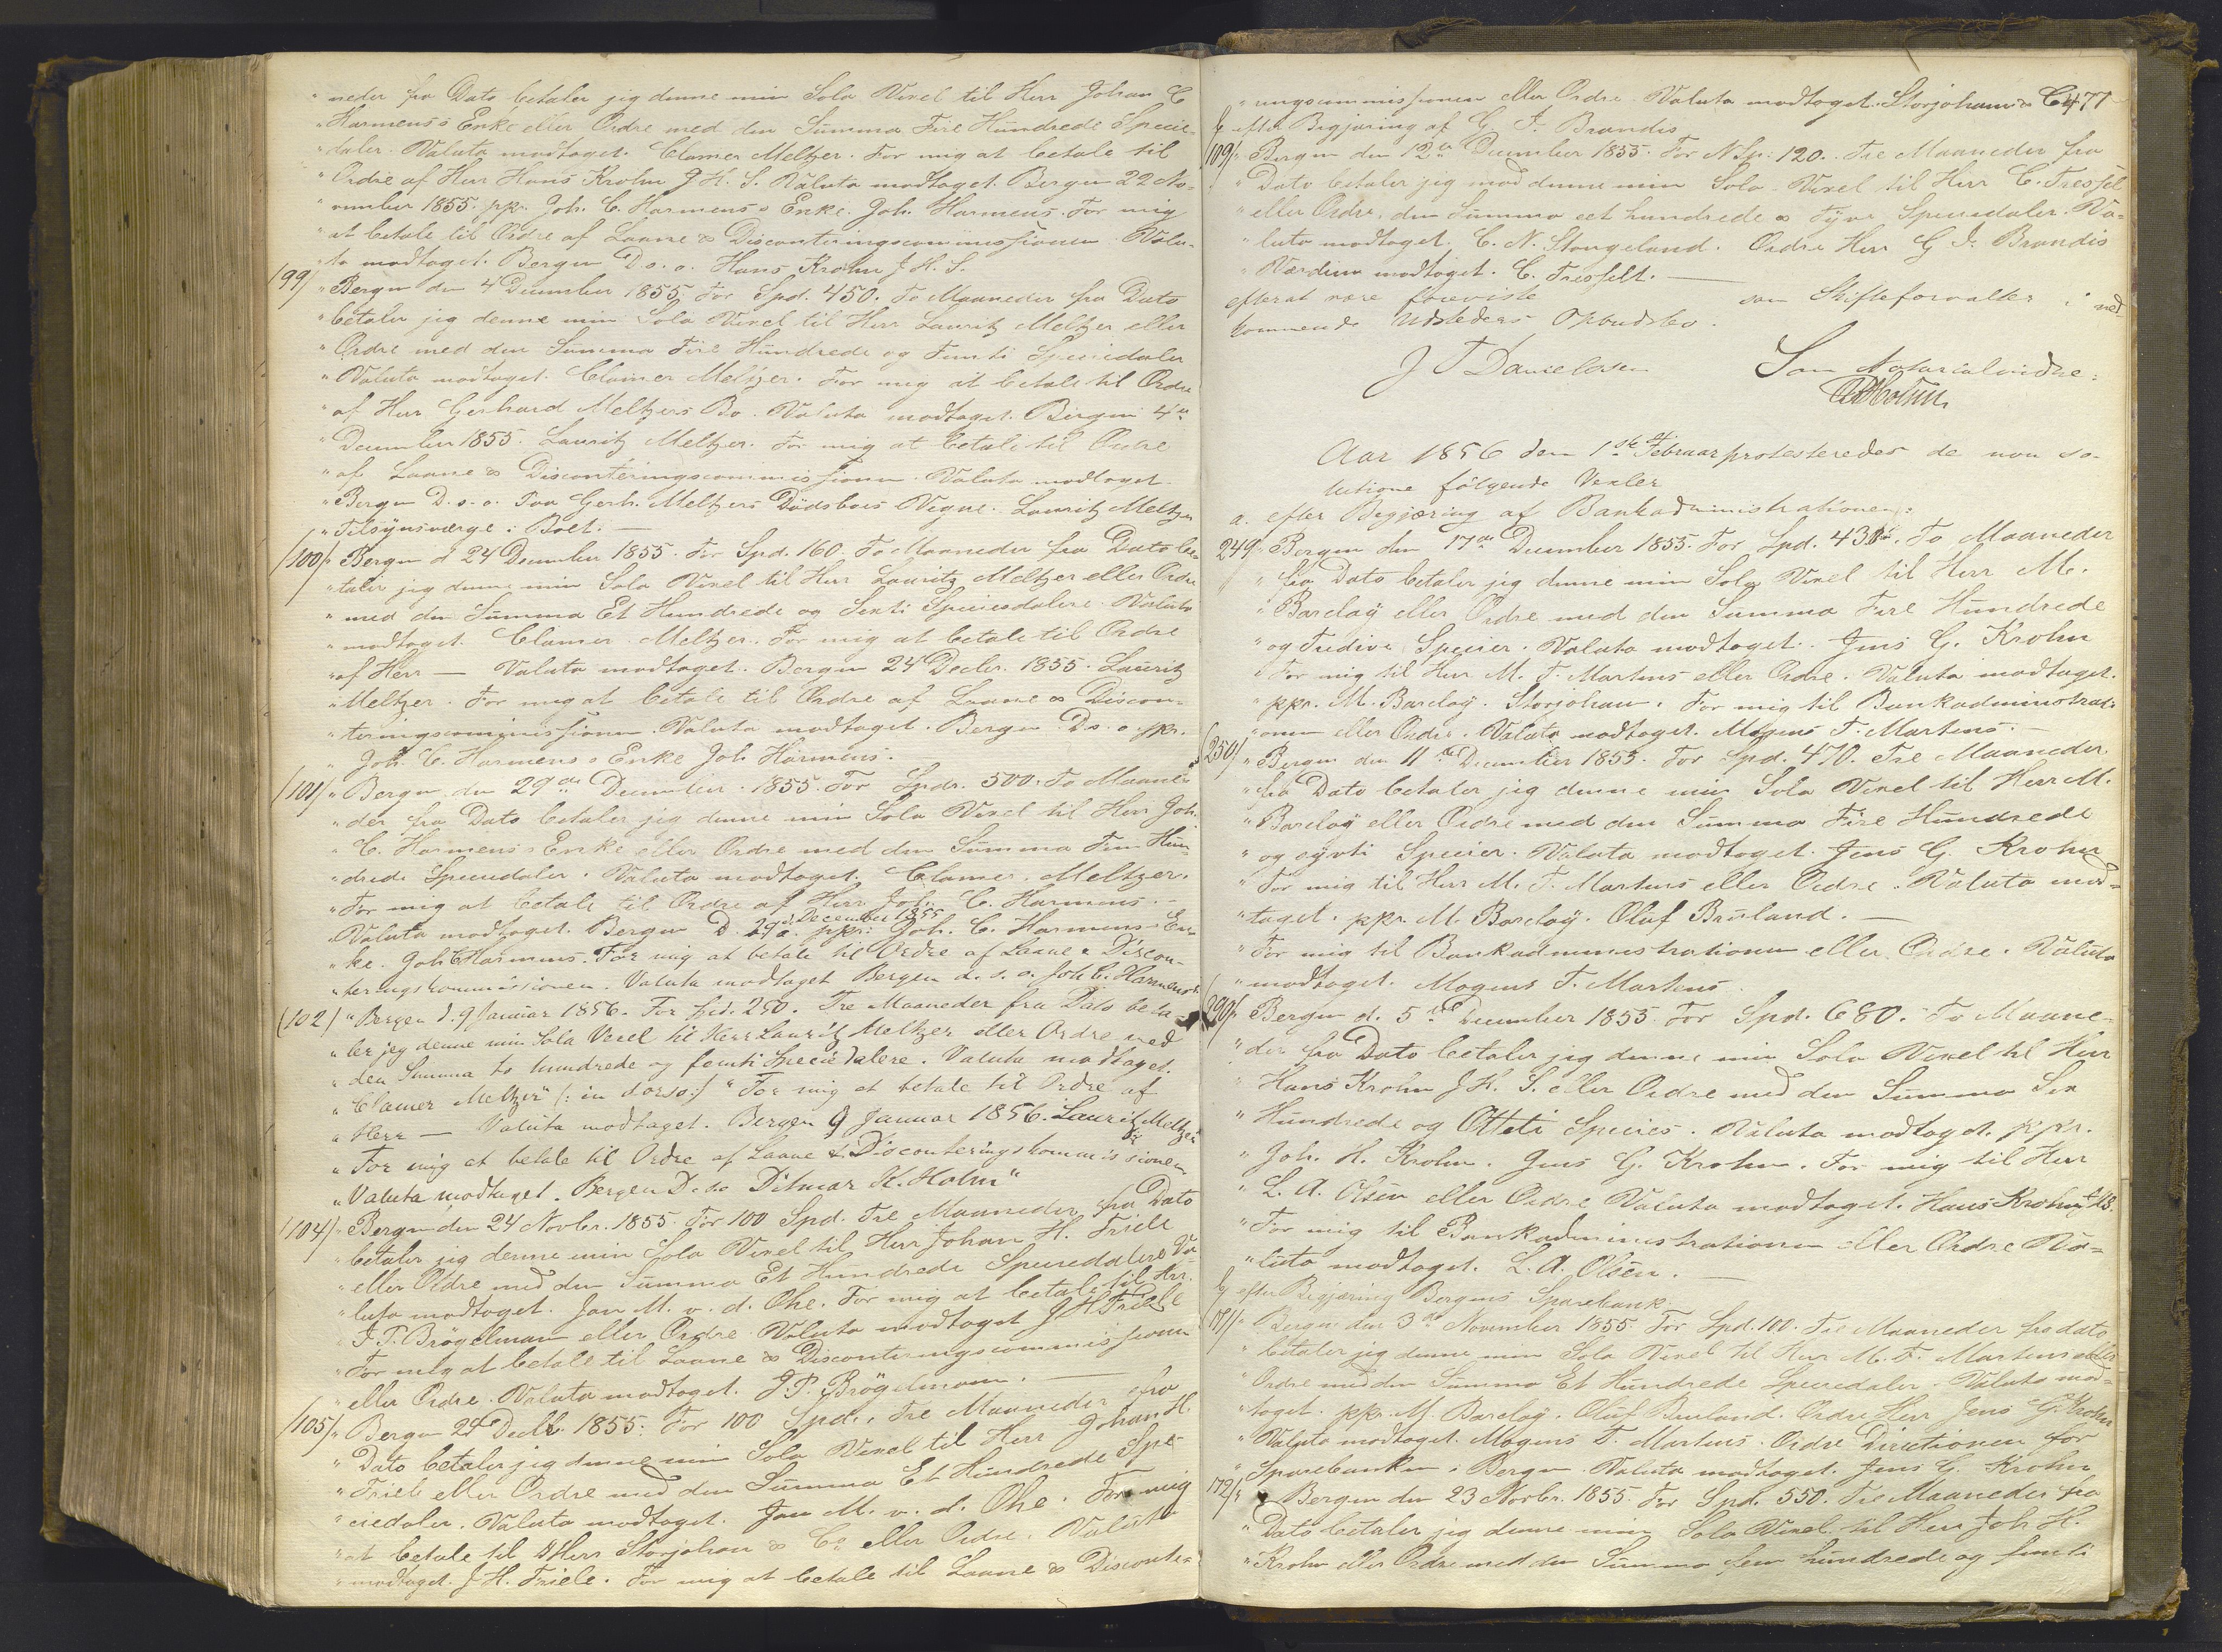 "neder fra Dato betaler jig denne min Sola Vexel til Herr Johan C
"Harmens's Enke eller Ordre med den Summa Fire Hundrede Specie-
"daler. Valuta modtaget. Clamer Meltzer. For mig at betale til
"Ordre af Herr Hans Krohn J. H. S. Valuta modtaget. Bergen 22 No-
"vember 1855. ppr. Joh. C. Harmens's Enke. Joh. Harmens. For mig
"at betale til Ordre af Laane & Disconteringscommissionen. Valu-
"ta modtaget. Bergen D. s. o. Hans Krohn J. H. S.
/99/ "Bergen den 4 December 1855 For Spd. 450. To Maaneder fra Dato
"betaler jig denne min Sola Vexel til Herr Lauritz Meltzer eller
"Ordre med den Summa Fire Hundrede og Femti Speciedaler
"Valuta modtaget. Clamer Meltzer. For mig at betale til Ordre
"af Herr Gerhard Meltzers Bo. Valuta modtaget. Bergen 4de
"December 1855. Lauritz Meltzer. For mig at betale til Ordre
"af Laane & Disconteringscommissionen. Valuta modtaget.
"Bergen D. s. o. Paa Gerh. Meltzers Dödsboes Vegne. Lauritz Meltzer
"Tilsynsværge i Boet. —
/100/ "Bergen d 24 December 1855. For Spd. 160. To Maaneder fra Dato be-
"taler jig denne min Sola Vexel til Herr Lauritz Meltzer eller Ordre
"med den Summa Et Hundrede og Sexti Speciesdalere. Valuta
"modtaget. Clamer Meltzer. For mig at betale til Ordre
"af Herr — Valuta modtaget. Bergen 24 Decbr. 1855. Lauritz
"Meltzer. For mig at betale til Ordre af Laane & Discon-
"teringscommissionen. Valuta modtaget. Bergen D. s. o. ppr.
"Joh. C. Harmens's Enke Joh Harmens.
/101/ "Bergen den 29de December 1855. For Spdr. 500. To Maane-
"der fra Dato betaler jig denne min Sola Vexel til Herr Joh.
"C. Harmens's Enke eller Ordre med den Summa Fem Hun-
"drede Speciedaler. Valuta modtaget. Clamer Meltzer.
"For mig at betale til Ordre af Herr Joh. C. Harmens. -
"Valuta modtaget. Bergen D. 29de December 1855 ppr: Joh. C. Harmens En-
"ke. Joh C Harmens. For mig at betale til Ordre af Laane & Discon-
"teringskommissionen. Valuta modtaget Bergen d. s. o. Joh C. Harmens"
(102) "Bergen d. 9 Januar 1856. For Spd. 250. Tre Maaneder fra Dato beta-
"ler jeg denne min Sola Vexel til Herr Lauritz Meltzer eller Ordre med
"den Summa to hundrede og femti Speciedalere. Valuta modtaget.
"Clamer Meltzer" (: in dorso:) "For mig at betale til Ordre af
"Herr — Valuta modtaget. Bergen 9 Januar 1856. Lauritz Meltzer
"For mig at betale til Ordre af Laane & Disconteringskommissionen
"Valuta modtaget. Bergen D. s. o Ditmar K. Holm"
/104/ "Bergen den 24 Novbr. 1855. For 100 Spd. Tre Maaneder fra Dato
"betaler jig denne min Sola Vexel til Herr Johan H. Friele
"eller Ordre med den Summa Et Hundrede Speciedalere Va-
"luta modtaget. Jan M. v. d. Ohe. For mig at betale til Hr.
"J. P. Brögelmann eller Ordre. Valuta modtaget J H Friele
"For mig at betale til Laane & Disconteringscommissionen
"eller Ordre. Valuta modtaget. J. P. Brögelmann. —
/105/ "Bergen 24de Decbr. 1855. For 100 Spd. Tre Maaneder fra
"Dato betaler jig denne min Sola Vexel til Herr Johan H.
"Friele eller Ordre med den Summa Et Hundrede Spe-
"ciedaler. Valuta modtaget. Jan M. v. d. Ohe. For mig
"at betale til Herr Storjohan & Co eller Ordre. Valuta
"modtaget. J H. Friele. For mig at betale til Laane & Disconte-
"ringscommissionen eller Ordre. Valuta modtaget. Storjohann & C 477
b, efter Begjæring af G. J. Brandis
/109/ "Bergen den 12te December 1855. For N Sp. 120. Tre Maaneder fra
"Dato betaler jig mod denne min Sola Vexel til Herr C. Tresselt
"eller Ordre, den Summa eet hundrede & Tyve Speciedaler. Va-
"luta modtaget. C. N. Stangeland. Ordre Herr G J. Brandis
"Værdien modtaget. C. Tresselt. —
efterat være foreviste som Skifteforvalter i ved-
kommende Udsteders Opbudsbo.
J T Danielssen Som Notarialvidne:
Holm
Aar 1856 den 1ste Februar protesteredes de non so-
lutione følgende Vexler
a. efter Begjæring af Bankadministrationen:
249 "Bergen den 17de December 1855. For Spd. 430. To Maaneder
"fra Dato betaler jig denne min Sola Vexel til Herr M.
"Barclay eller Ordre med den Summa Fire Hundrede
"og Tredive Specier. Valuta modtaget. Jens G. Krohn
"For mig til Herr M. T. Martens eller Ordre. Valuta modtaget.
"ppr. M. Barclay. Storjohan. For mig til Bankadministrati-
"onen eller Ordre. Valuta modtaget. Mogens T. Martens. —
/250/ "Bergen den 11te December 1855. For Spd. 470. Tre Maaneder
"fra Dato betaler jig denne min Sola Vexel til Herr M.
"Barclay eller Ordre med den Summa Fire Hundrede
"og syvti Specier. Valuta modtaget. Jens G. Krohn
"For mig til Herr M. T. Martens eller Ordre. Valuta mod-
"taget. ppr. M. Barclay. Oluf Bruland. —
"For mig til Bankadministrationen eller Ordre. Valuta
"modtaget. Mogens T. Martens.
/290/ "Bergen d. 5te December 1855. For Spd. 680. To Maane-
"der fra Dato betaler jig denne min Sola Vexel til Herr
"Hans Krohn J H. S. eller Ordre med den Summa Sex
"Hundrede og Otteti Species. Valuta modtaget. ppr.
"Joh. H. Krohn. Jens G. Krohn. For mig til Herr
"L. A. Olsen eller Ordre Valuta modtaget. Hans Krohn J H S.
"For mig til Bankadministrationen eller Ordre Va-
"luta modtaget. L. A. Olsen. —
b, efter Begjæring Bergens Sparebank
/171/ "Bergen den 3de November 1855. For Spd. 100. Tre Maaneder fra dato
"betaler jig denne min Sola Vexel til Herr M. T. Martens eller
"Ordre med den Summa Et Hundrede Speciedaler. Valuta mod-
"taget. ppr. M. Barclay. Oluf Bruland. Ordre Herr Jens G. Krohn
"Valuta modtaget. Mogens T. Martens. Ordre Directionen for
"Sparebanken i Bergen. Valuta modtaget. Jens G. Krohn
172/ "Bergen den 23 Novbr. 1855. For Spd. 550. Tre Maaneder fra
"Dato betaler jig denne min Sola Vexel til Herr Joh H.
"Krohn eller Ordre med den Summa fem hundrede og femti